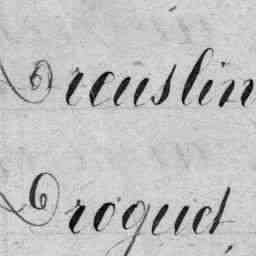 Dreuslin
Droguet